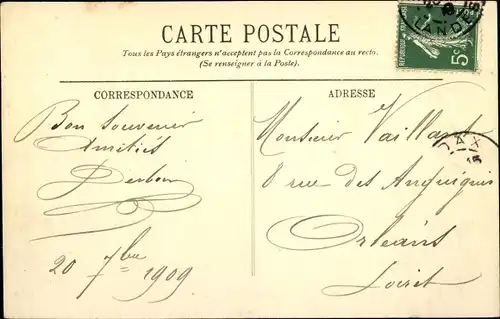 CARTE POSTALE
Tous les Pays étrangers n'acceptent pas la Correspondance au recto.
(Se renseigner à la Poste).
CORRESPONDANCE
Bon Souvenir
Amitiés
20 7bre 1909
ADRESSE
Monsieur Vaillant
8 rue des Anguignis
Orléans
Loiret
LANDES
5c
DAX